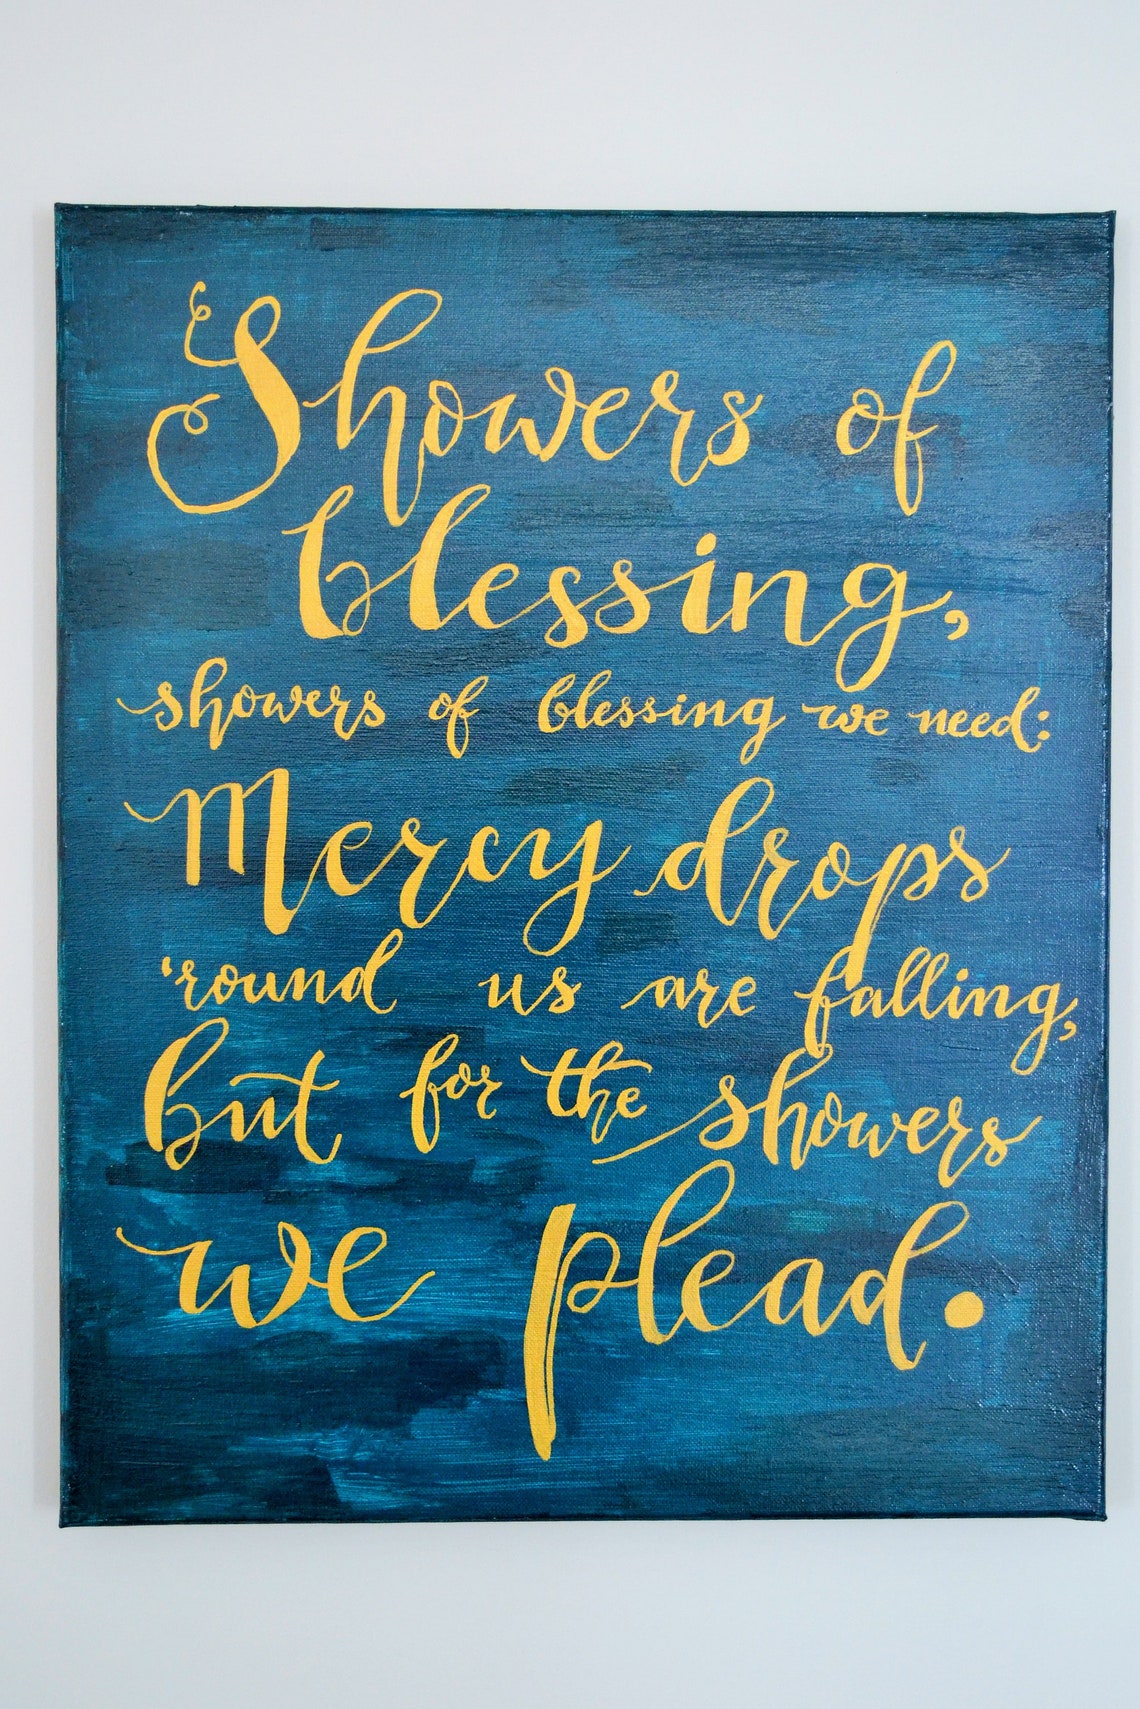 Showers of
blessing,
showers of blessing we need:
Mercy drops
'round us are falling,
but for the showers
we plead.